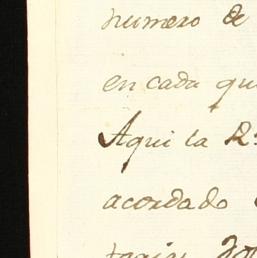 numero de
en cada qu
Aqui la R
acordado